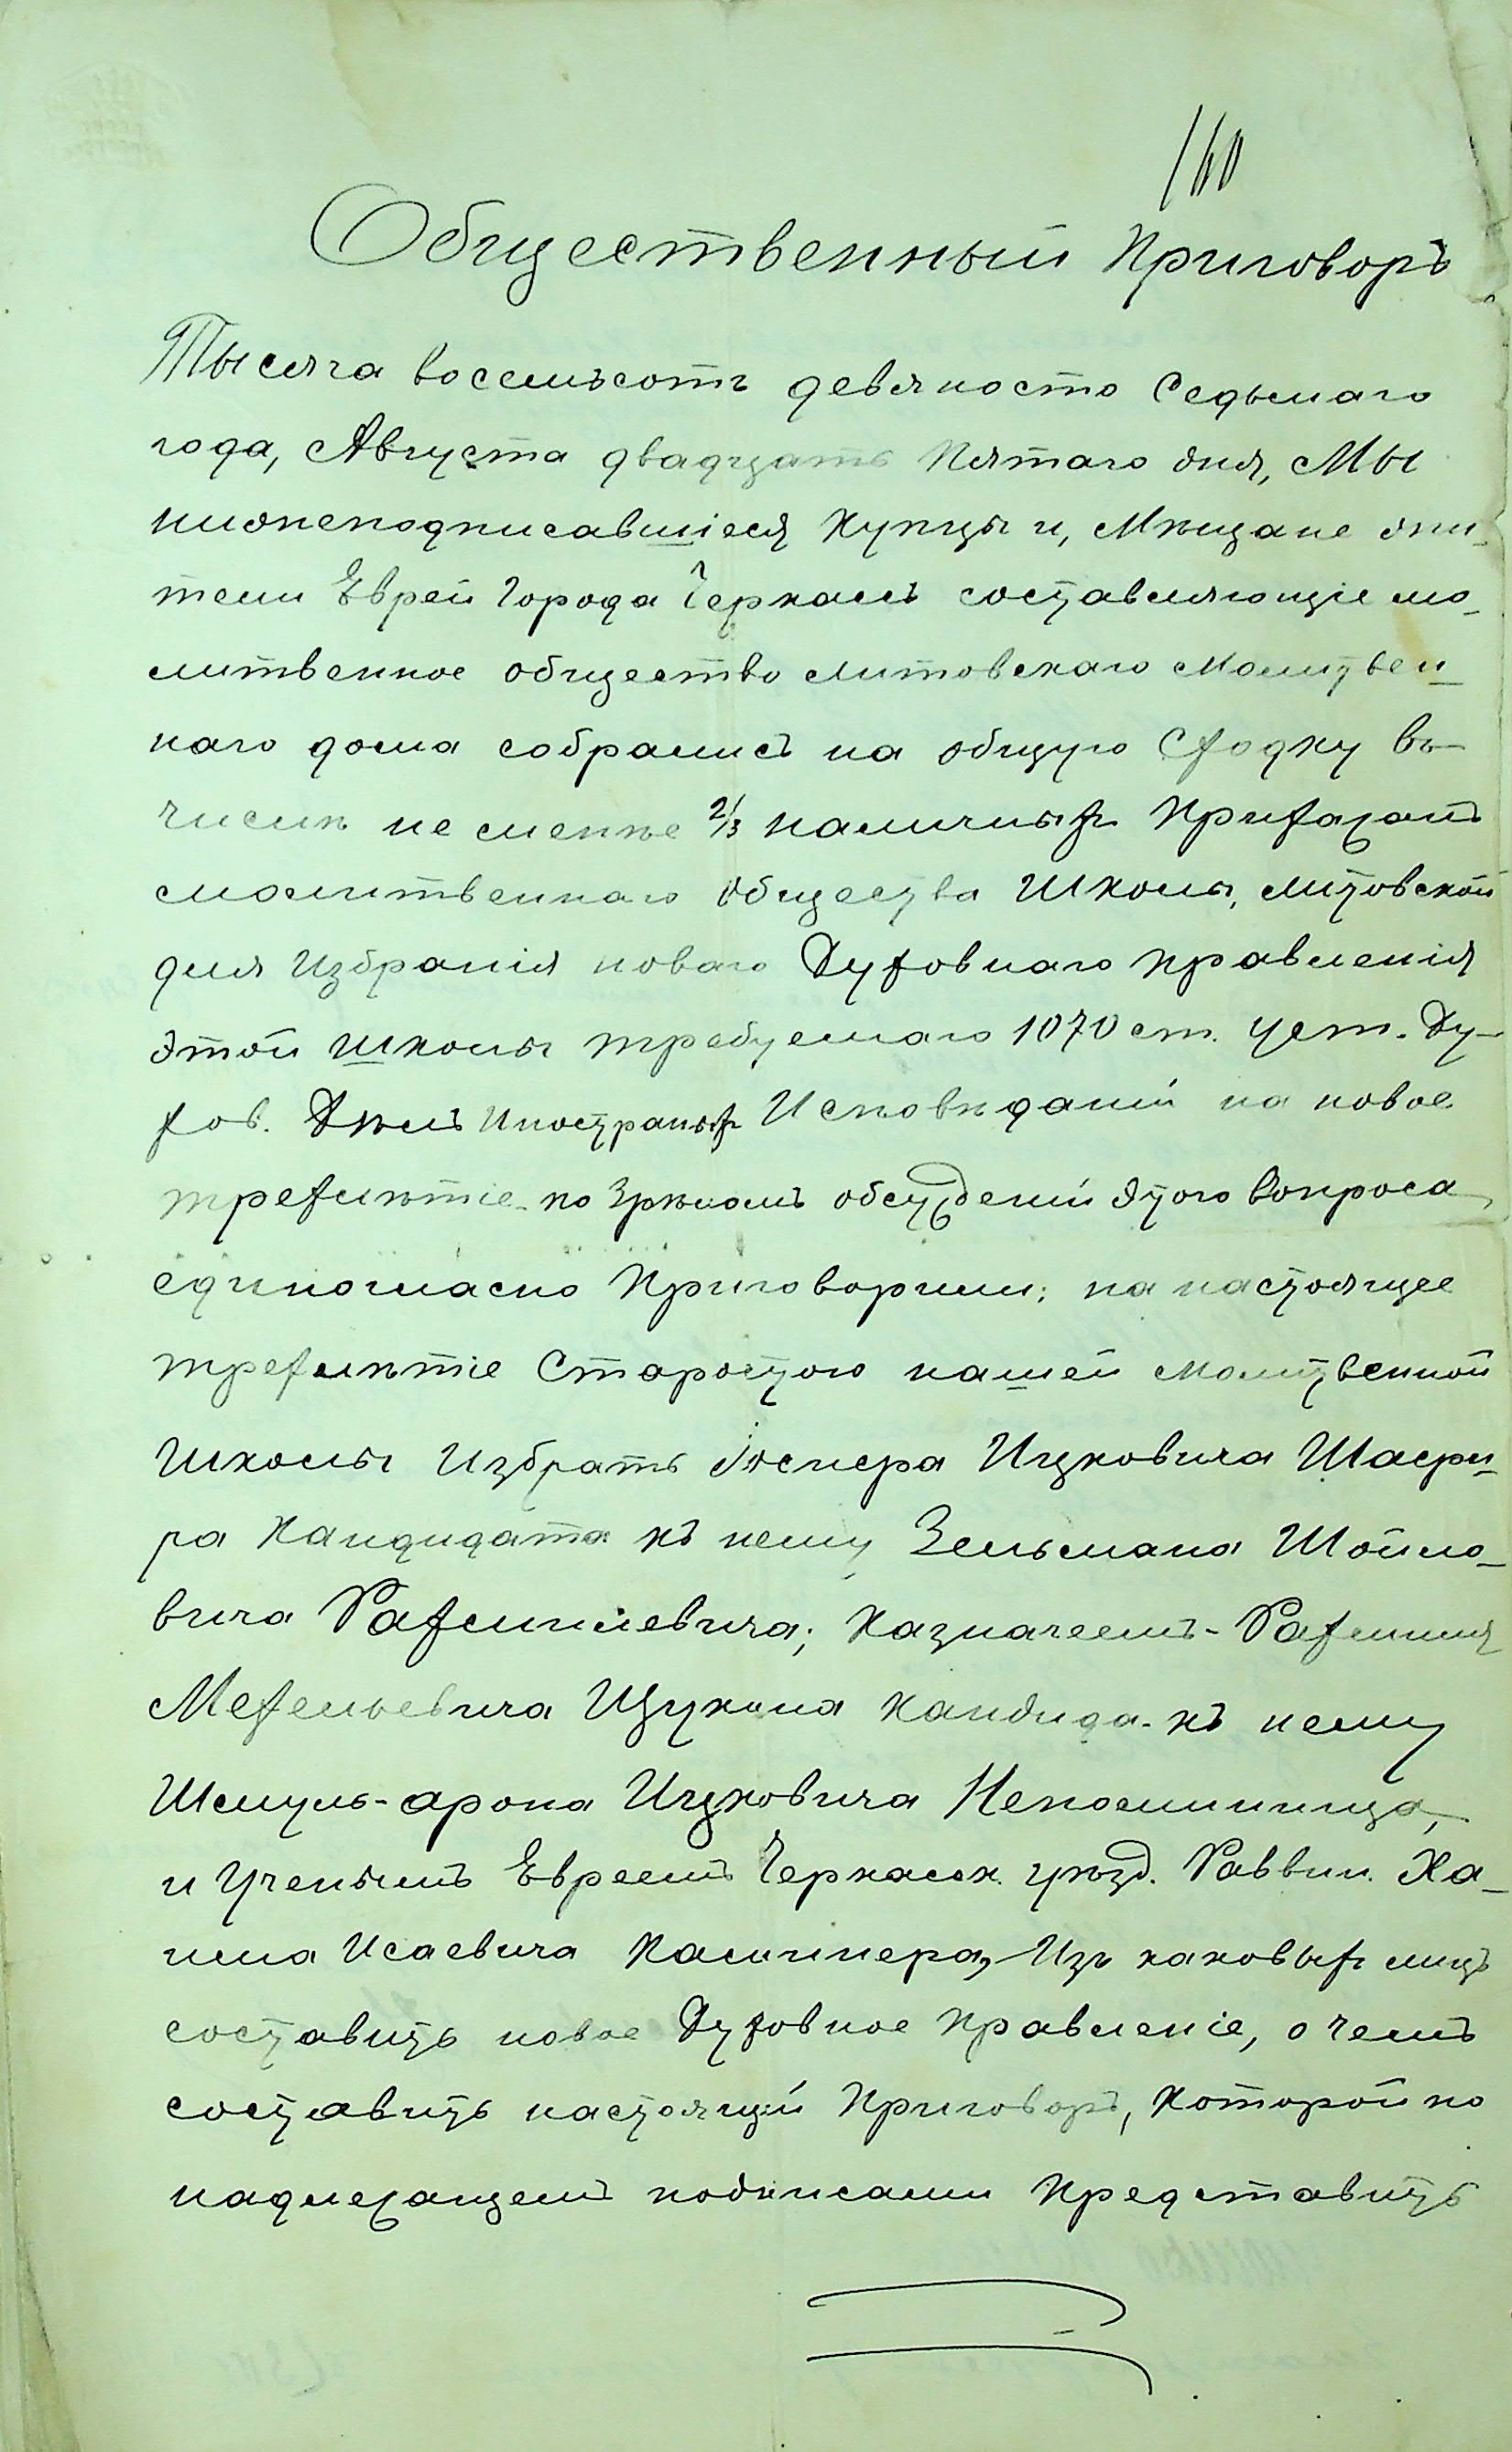 160
Общественный Приговоръ
Тысяча восемьсотъ девяносто Седьмаго
года, Августа двадцать Пятаго дня, Мы
нижеподписавшіеся Купцы и, Мѣщане жи-
тели Евреи Города Черкасъ составляющіе мо-
литвенное общество литовскаго Молитвен-
наго дома собрались на общую Сходку въ
числѣ не менѣе 2/3 наличныхъ Прихожанъ
молитвеннаго общества Школы, литовской
для Избранія новаго Духовнаго Правленія
этой школы требуемаго 1070 ст. Уст. Ду-
хов. Дѣлъ Иностраныхъ Исповѣданій на новое
трехлѣтіе по Зрѣломъ обсужденіи этого Вопроса
единогласно Приговорили: на настоящее
трехлѣтіе Старостою нашей Молитвенной
Школы Избрать Ицковича Шафи-
ра Кандидата къ нему Зельмана Шойло-
вича Рахмилевича; Казначеемъ - Рахмиля
Мехельевича Щукина Кандида. къ нему
Шмуль-арона Ицковича Непомнищаго,
и Ученымъ Евреемъ Черкасск. уѣзд. Раввин. Ха-
има Исаевича Кальчинера, Изъ каковыхъ лицъ
составить новое Духовное Правленіе, о чемъ
составить настоящій Приговоръ, Которой по
надлежащемъ подписами Представить